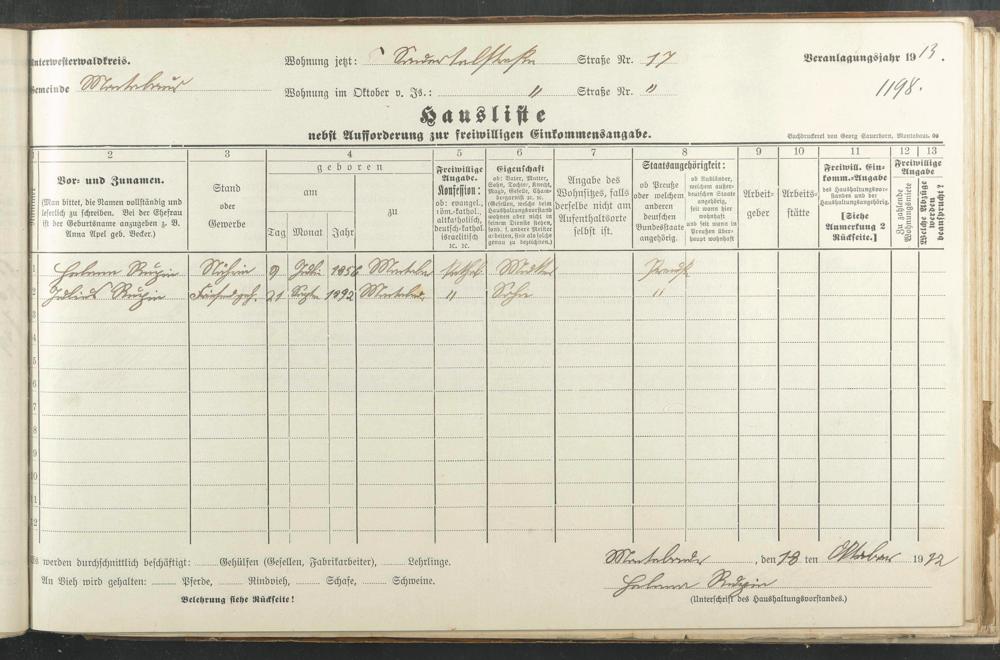 Unterwesterwaldkreis.
Wohnung jetzt: Sauertalstraße Straße Nr. 17
Veranlagungsjahr 1913.
Gemeinde Montabaur
Wohnung im Oktober v. Js.: " Straße Nr. "
1198.
Hausliste
nebst Aufforderung zur freiwilligen Einkommensangabe.
Buchdruckerei von Georg Sauerborn, Montabaur.
1 2 3 4 5 6 7 8 9 10 11 12 13
Vor- und Zunamen.
(Man bittet, die Namen vollständig und
leserlich zu schreiben. Bei der Ehefrau
ist der Geburtsname anzugeben z. B.
Anna Apel geb. Becker.)
Stand
oder
Gewerbe
geboren
am
zu
Tag Monat Jahr
Freiwillige
Angabe.
Konfession:
ob: evangel.,
röm.-kathol.,
altkatholisch,
deutsch-kathol.
israelitisch
ꝛc. ꝛc.
Eigenschaft
ob: Vater, Mutter,
Sohn, Tochter, Knecht,
Magd, Geselle, Cham-
bergarnist ꝛc. ꝛc.
Gesellen, welche beim
Haushaltungsvorstand
wohnen aber nicht in
seinem Dienste stehen,
sond. f. andere Meister
arbeiten, sind als solche
genau zu bezeichnen.)
Angabe des
Wohnsitzes, falls
derselbe nicht am
Aufenthaltsorte
selbst ist.
Staatsangehörigkeit:
ob Preuße
oder welchem
anderen
deutschen
Bundesstaate
angehörig.
ob Ausländer,
welchem außer-
deutschen Staate
angehörig,
seit wann hier
wohnhaft
und seit wann in
Preußen über-
haupt wohnhaft
Arbeit-
geber
Arbeits-
stätte
Freiwill. Ein-
komm.-Angabe
des Haushaltungsvor-
standes und der
Haushaltungsangehörig.
[Siehe
Anmerkung 2
Rückseite.]
Freiwillige
Angabe
Zu zahlende
Wohnungsmiete
Welche Abzüge
werden
beansprucht?
1 Helena Näherin 9 Juli 1856 Montabr kathol. Mutter Preuß.
2 Julius 21 Septbr 1892 Montabr. " Sohn "
3
4
5
6
7
8
9
10
11
12
Es werden durchschnittlich beschäftigt: Gehülfen (Gesellen, Fabrikarbeiter), Lehrlinge.
An Vieh wird gehalten: Pferde, Rindvieh, Schafe, Schweine.
Belehrung siehe Rückseite!
Montabaur, den 18 ten Oktober 1912
Helena
(Unterschrift des Haushaltungsvorstandes.)